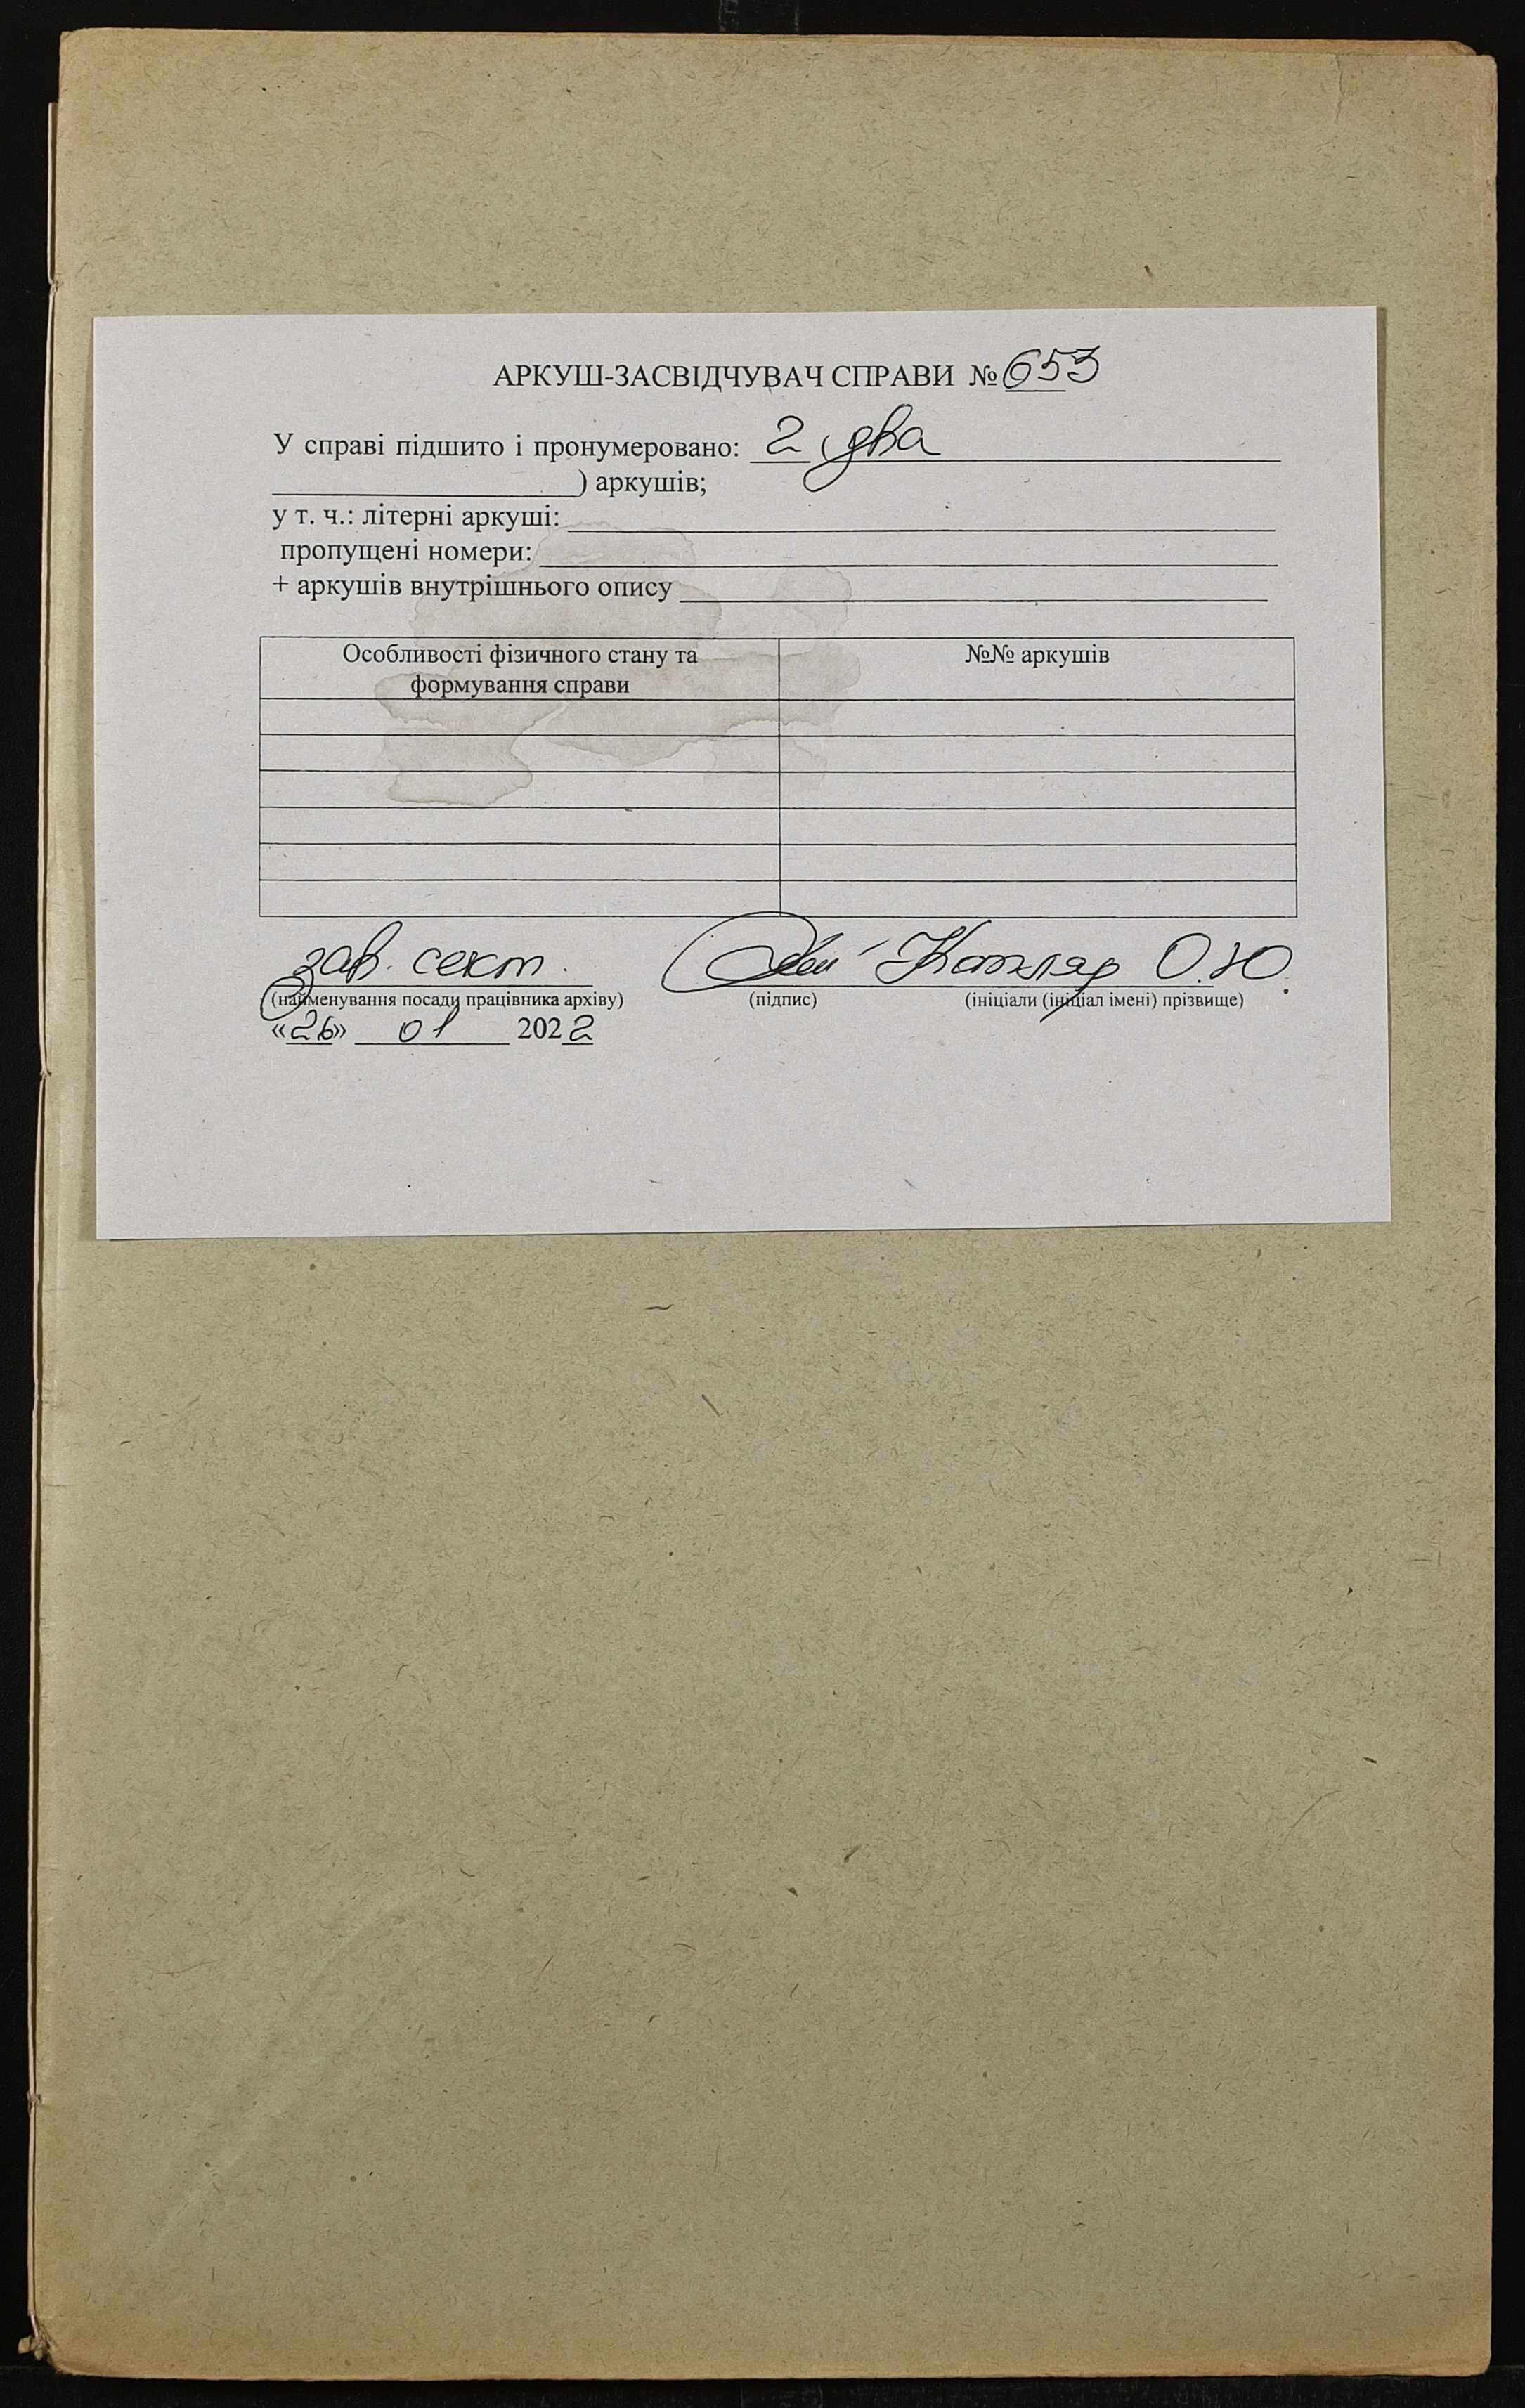 АРКУШ-ЗАСВІДЧУВАЧ СПРАВИ № 653
У справі підшито і пронумеровано: 2 (два
) аркушів;
у т. ч.: літерні аркуші:
пропущені номери:
+ аркушів внутрішнього опису
Особливості фізичного стану та №№ аркушів
формування справи
зав. сект. Котляр О.Ю.
(найменування посади працівника архіву) (підпис) (ініціали (ініціал імені) прізвище)
«26» 01 2022